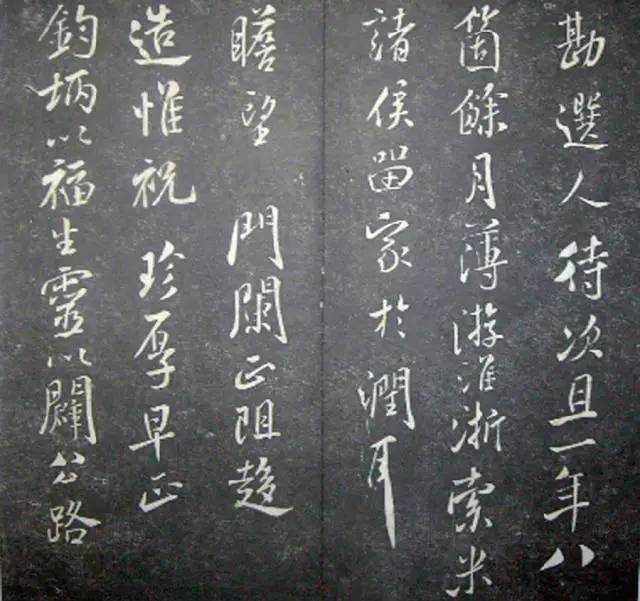 勘選人待次且一年八
箇餘月薄游淮浙索米
諸侯留家於潤耳
瞻望 門闌正阻趍
造惟祝 珍厚早正
鈞炳以福生靈以闢公路